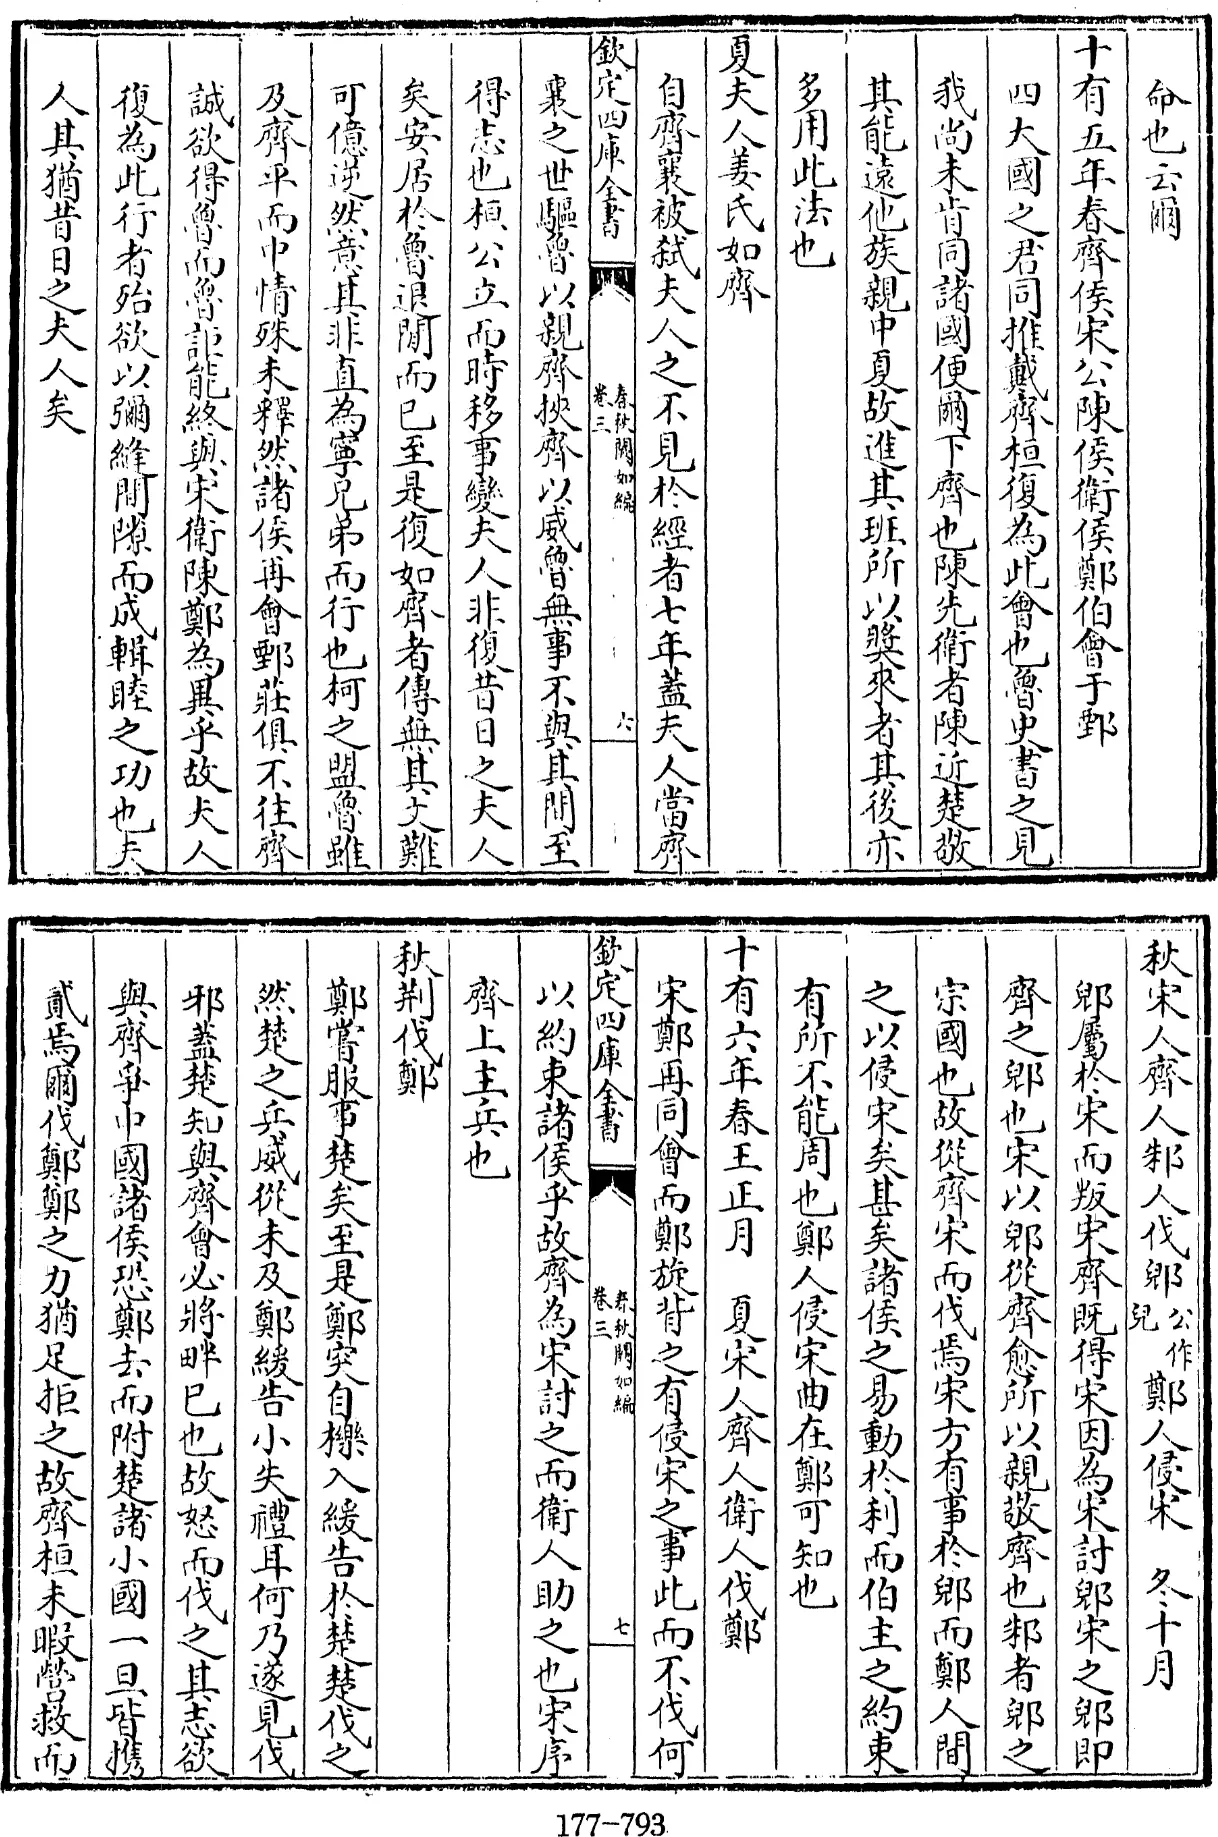 命也云爾
十有五年春齊侯宋公陳侯衛侯鄭伯會于鄄
四大國之君同推戴齊桓復為此會也魯史書之見
我尚未肯同諸國便爾下齊也陳先衛者陳近楚敬
其能遠他族親中夏故進其班所以奬來者其後亦
多用此法也
夏夫人姜氏如齊
自齊襄被弑夫人之不見於經者七年蓋夫人當齊
欽定四庫全書
春秋闕如編
卷三
六
襄之世驅魯以親齊挾齊以威魯無事不與其間至
得志也桓公立而時移事變夫人非復昔日之夫人
矣安居於魯退閒而已至是復如齊者傳無其文難
可億逆然意其非直為寧兄弟而行也柯之盟魯雖
及齊平而中情殊未釋然諸侯再會鄄莊俱不往齊
誠欲得魯而魯詎能終與宋衛陳鄭為異乎故夫人
復為此行者殆欲以彌縫間隙而成輯睦之功也夫
人其猶昔日之夫人矣
秋宋人齊人邾人伐郳公作兒鄭人侵宋 冬十月
郳屬於宋而叛宋齊既得宋因為宋討郳宋之郳即
齊之郳也宋以郳從齊愈所以親敬齊也邾者郳之
宗國也故從齊宋而伐焉宋方有事於郳而鄭人間
之以侵宋矣甚矣諸侯之易動於利而伯主之約束
有所不能周也鄭人侵宋曲在鄭可知也
十有六年春王正月 夏宋人齊人衛人伐鄭
宋鄭再同會而鄭旋背之有侵宋之事此而不伐何
欽定四庫全書
春秋闕如編
卷三
七
以約束諸侯乎故齊為宋討之而衛人助之也宋序
齊上主兵也
秋荆伐鄭
鄭嘗服事楚矣至是鄭突自櫟入緩告於楚楚伐之
然楚之兵威從未及鄭緩告小失禮耳何乃遂見伐
邪蓋楚知與齊會必將畔已也故怒而伐之其志欲
與齊爭中國諸侯恐鄭去而附楚諸小國一旦皆携
貳焉爾伐鄭鄭之力猶足拒之故齊桓未暇營救而
177-793